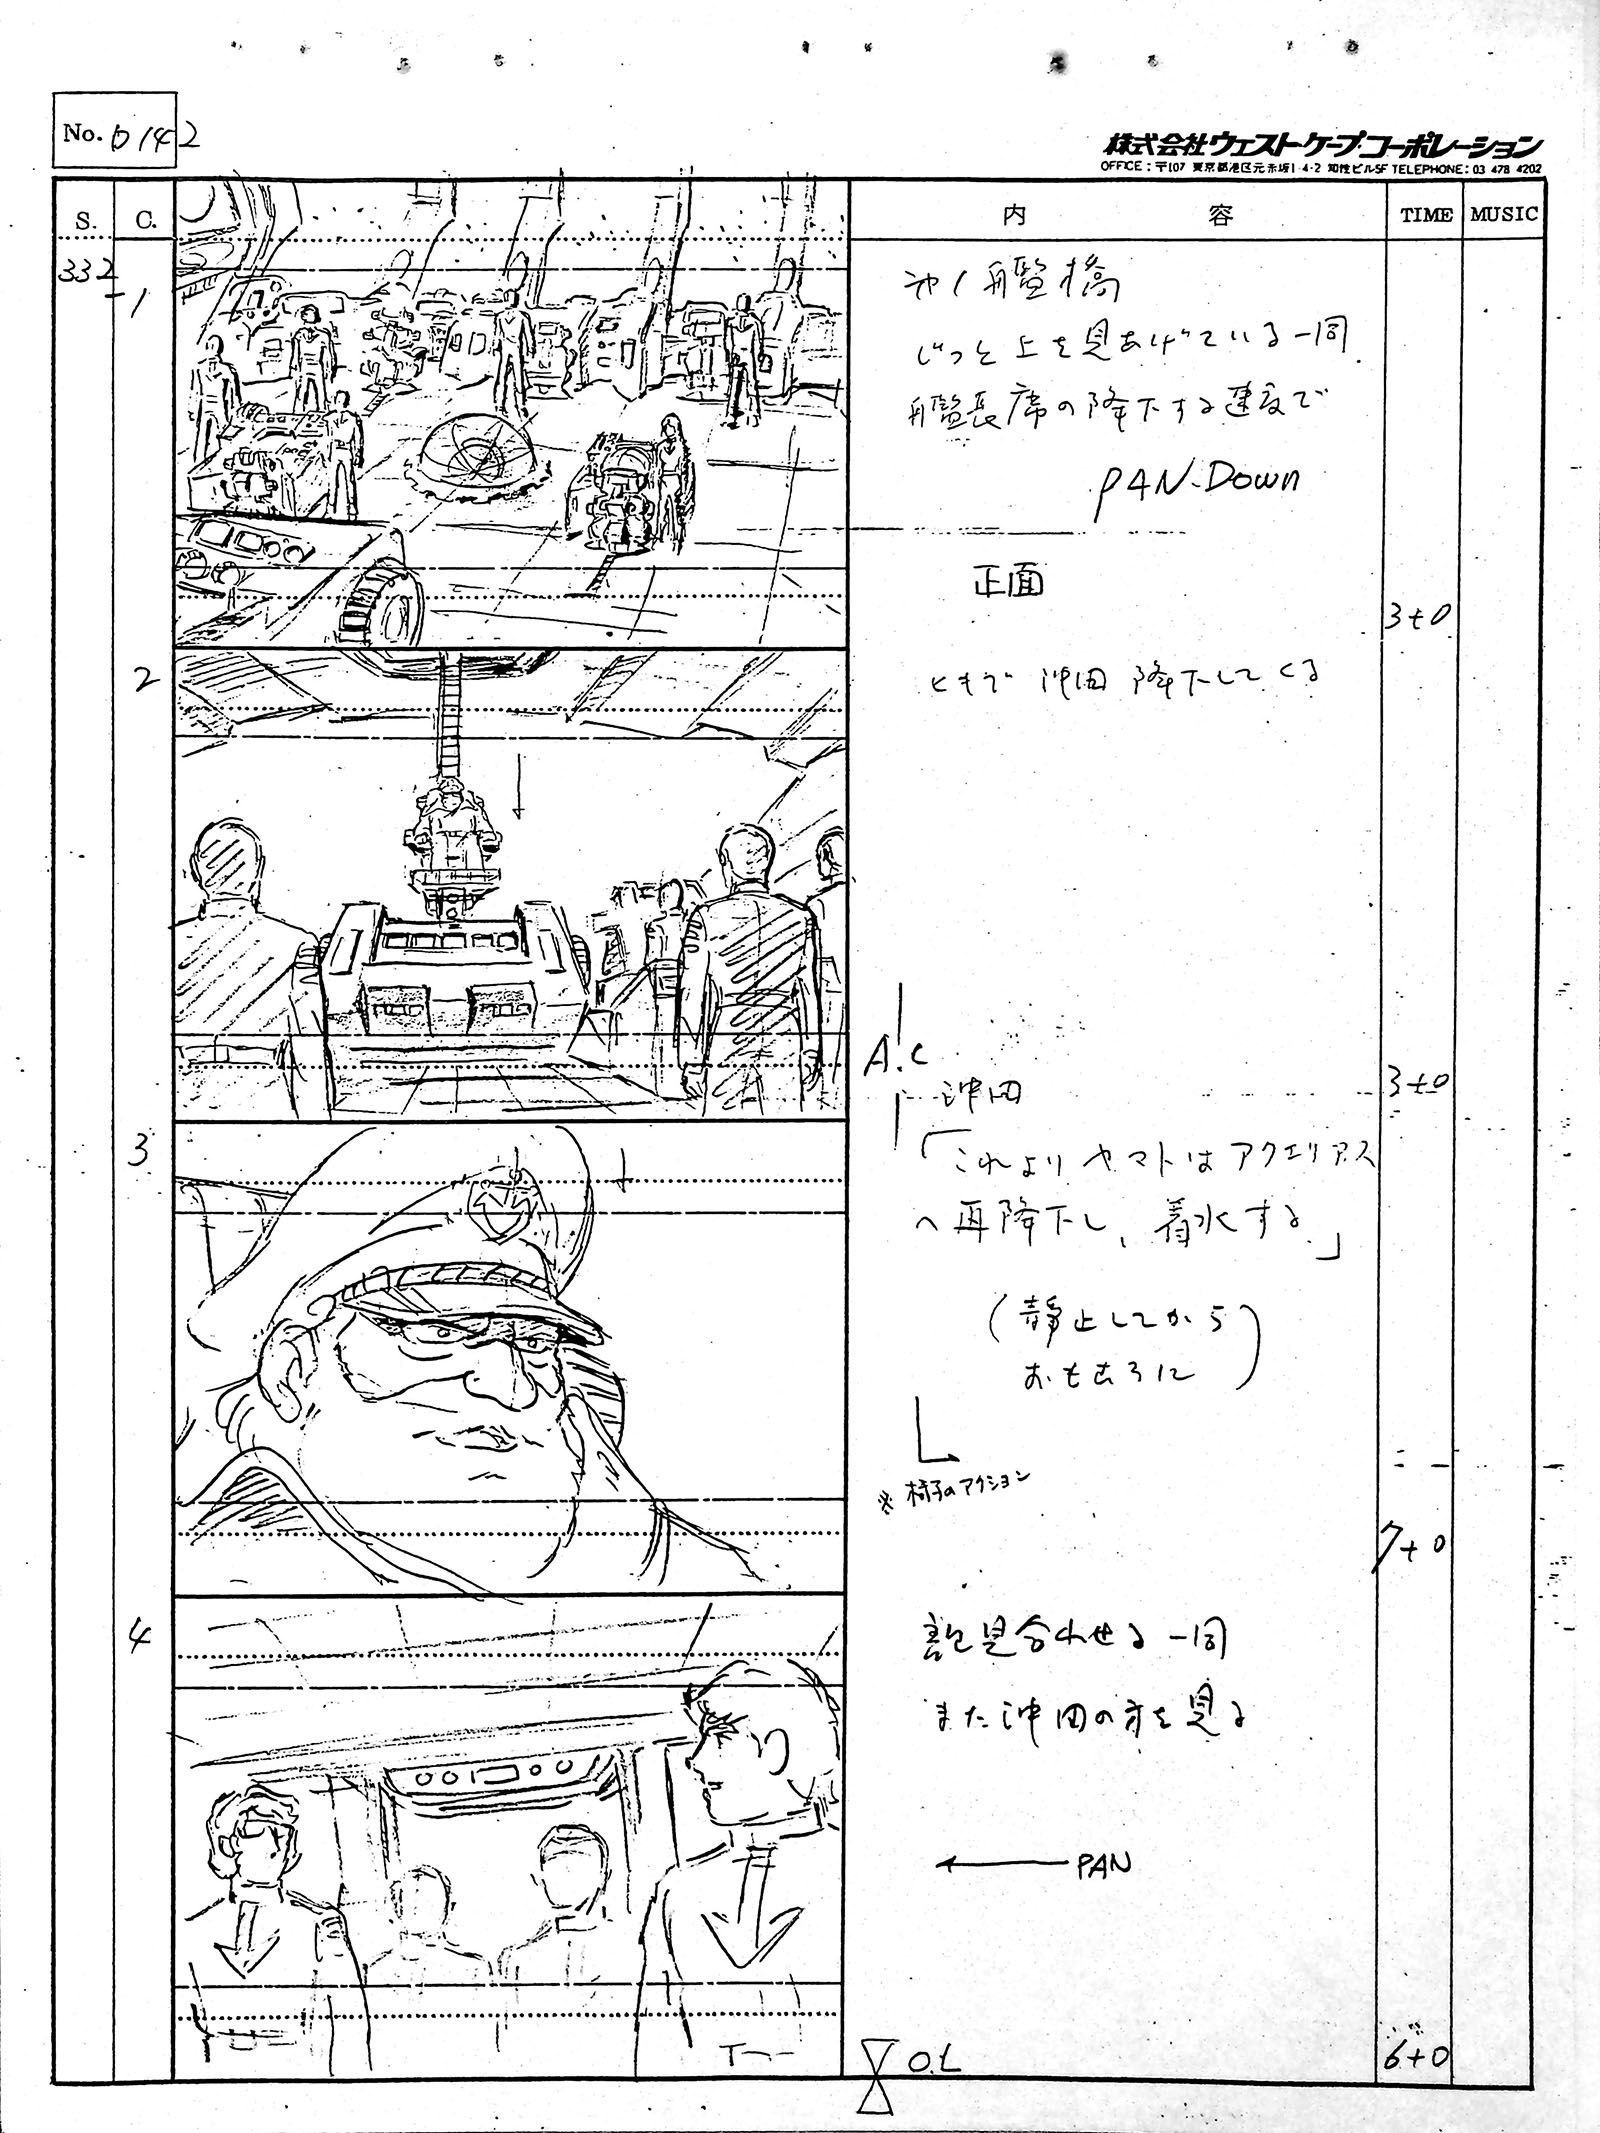 No. D142
株式会社ウェスト・ケープ・コーポレーション
OFFICE：〒107 東京都港区元赤坂1-4-2 知性ビル5F TELEPHONE：03 478 4202
S. C. 内容 TIME MUSIC
332
-1
艦橋
じっと上を見あげている一同
艦長席の降下する速度で
PAN-Down
正面
3+0
2
沖田降下してくる
A.C
3+0
3
沖田
「これよりヤマトはアクエリアス
へ再降下し、着水する」
(静止してから
おもむろに)
※椅子のアクション
7+0
4
顔見合わせる一同
また沖田の方を見る
← PAN
O.L
6+0